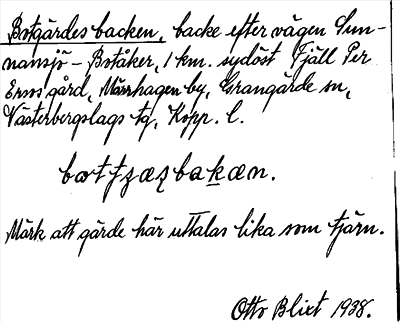 Botgärdesbacken, backe efter vägen Sun-
nansjö – Botåker, 1 km. sydöst Fjäll Per
Ersos gård, Märrhagen by, Grangärde sn,
Västerbergslags tg, Kopp. l.
Märk att gärde här uttalas lika som tjärn.
Otto Blixt 1938.